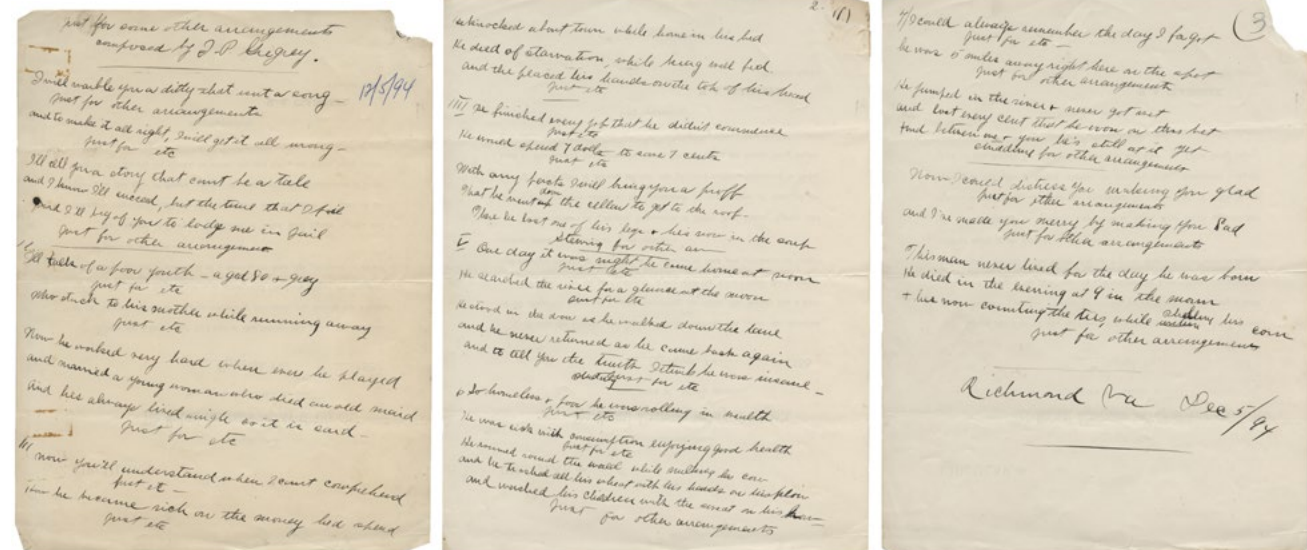 Just for some other arrangements
composed by J. P.
12/5/94
I will warble you a ditty that isnt a song —
Just for other arrangements
and to make it all right, I will get it all wrong —
just for etc
Ill tell you a story that cant be a tale
and I know Ill succeed, but the time that I fail
and Ill beg of you to lodge me in jail
just for other arrangements
Ill talk of a poor youth — aged 80 + grey
just for etc
Who stuck to his mother while running away
just etc
Now he worked very hard when ever he played
and married a young woman who died an old maid
and hes always lived single so it is said —
just for etc
III now you'll understand when I cant comprehend
just etc —
How he became rich on the money hed spend
just etc
2
(1)
about town while home in his bed
He died of starvation, while being well fed
and the placed his hands on the top of his head
just etc
IIII He finished every job that he didnt commence
just etc
He would spend 7 dolls to save 7 cents
just etc
With any facts I will bring you a proff
That he went down the cellar to get to the roof —
There he lost one of his legs + hes now in the soup
Starving for other arr
V One day it was night he came home at noon
just etc
He searched the river for a glance at the moon
just for etc
He stood in the door as he walked down the lane
and he never returned as he came back again
and to tell you the truth I think he was insane —
just for etc
So homeless + poor he was rolling in wealth
just etc
He was sick with consumption enjoying good health
just for etc
He round the while milking his cow
and he thrashed all his wheat with his heads on his plow
and washed his children with the sweat on his brow
Just for other arrangements
(3)
I could always remember the day I forgot
just for etc —
he was 5 miles away right here on the spot
just for other arrangements
He jumped in the river + never got wet
and lost every cent that he won on this bet
And between me + you he's still at it yet
for other arrangements
Now I could distress you making you glad
just for other arrangements
and I've made you merry by making you sad
just for other arrangements
This man never lived for the day he was born
He died in the evening at 9 in the morn
+ hes now counting the ties, while his corn
just for other arrangements
Richmond Va Dec 5/94